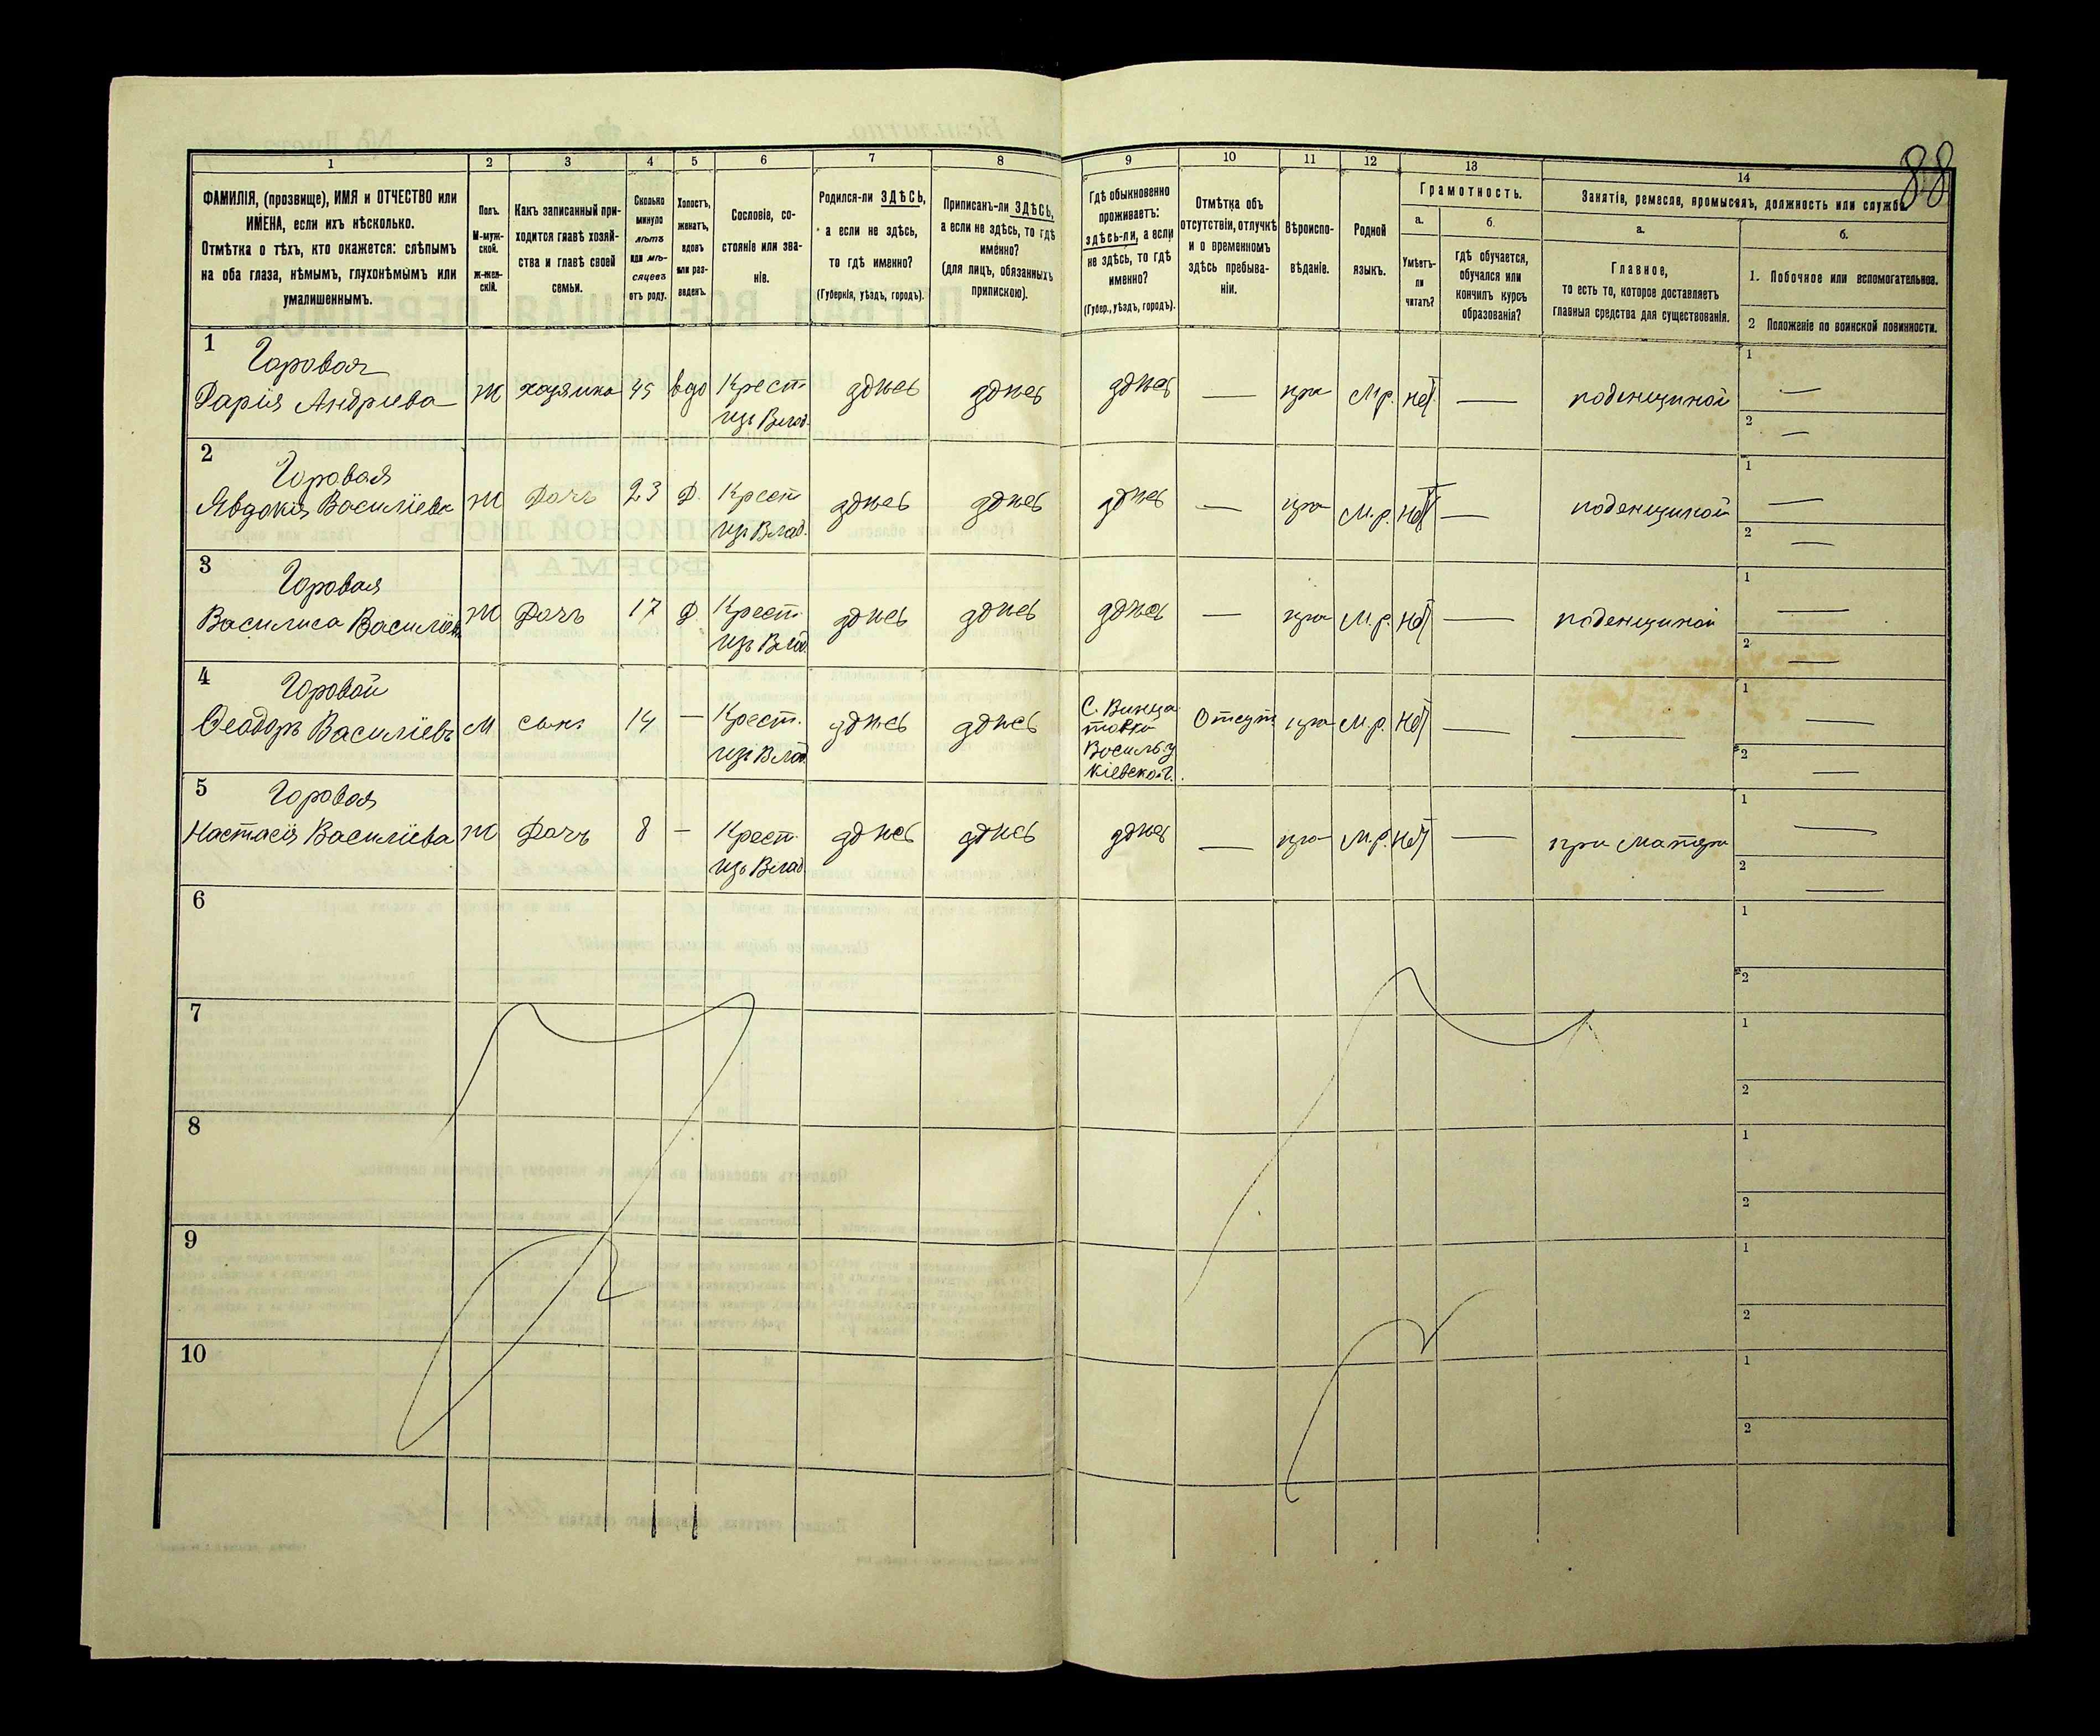 88
1 2 3 4 5 6 7 8 9 10 11 12 13 14
ФАМИЛІЯ, (прозвище), ИМЯ и ОТЧЕСТВО или
ИМЕНА, если ихъ нѣсколько.
Отмѣтка о тѣхъ, кто окажется: слѣпымъ
на оба глаза, нѣмымъ, глухонѣмымъ или
умалишеннымъ.
Полъ.
М-муж-
ской.
Ж-жен-
скій.
Какъ записанный при-
ходится главѣ хозяй-
ства и главѣ своей
семьи.
Сколько
минуло
лѣтъ
или мѣ-
сяцевъ
отъ роду.
Холостъ,
женатъ,
вдовъ
или раз-
веденъ.
Сословіе, со-
стояніе или зва-
ніе.
Родился-ли ЗДѢСЬ,
а если не здѣсь,
то гдѣ именно?
(Губернія, уѣздъ, городъ).
Приписанъ-ли ЗДѢСЬ,
а если не здѣсь, то гдѣ
именно?
(для лицъ, обязанныхъ
припискою).
Гдѣ обыкновенно
проживаетъ:
здѣсь-ли, а если
не здѣсь, то гдѣ
именно?
(Губер., уѣздъ, городъ).
Отмѣтка объ
отсутствіи, отлучкѣ
и о временномъ
здѣсь пребыва-
ніи.
Вѣроиспо-
вѣданіе.
Родной
языкъ.
Грамотность.
а.
Умѣетъ-
ли
читать?
б.
гдѣ обучается,
обучался или
кончилъ курсъ
образованія?
Занятія, ремесла, промыселъ, должность или служба.
а.
Главное,
то есть то, которое доставляетъ
главныя средства для существованія.
б.
1. Побочное или вспомогательное.
2 Положеніе по воинской повинности.
1 Горовая
Дарія Андріева Ж хозяйка 45 вдо Крест. здѣсь здѣсь здѣсь — пра М.р. нѣт — поденщиной 1 —
изъ Влад. 2 —
2 Горовая
Явдокія Василіева Ж Дочь 23 Д. Крест здѣсь здѣсь здѣсь — пра М.р. нѣт — поденщиной 1 —
изъ Влад. 2 —
3 Горовая
Василиса Василіев Ж Дочь 17 Д. Крест. здѣсь здѣсь здѣсь — пра М.р. нѣт — поденщиной 1 —
изъ Влад. 2 —
4 Горовой
Ѳеодоръ Василіевъ М сынъ 14 — Крест. здѣсь здѣсь Отсут. пра М.р. нѣт — — 1 —
изъ Влад. 2 —
Василь. у
Кіевской г.
5 Горовая
Настасія Василіева Ж Дочь 8 — Крест. здѣсь здѣсь здѣсь — пра М.р. нѣт — при матери 1 —
изъ Влад. 2 —
6 1
2
7 1
2
8 1
2
9 1
2
10 1
2